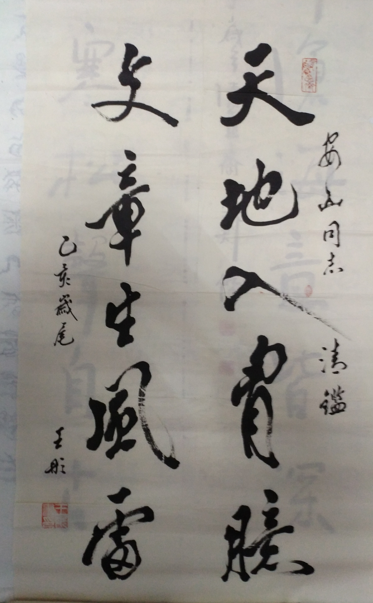 安山同志 清鑑
天地入胥臆
文章生風雷
乙亥歲尾
王彤